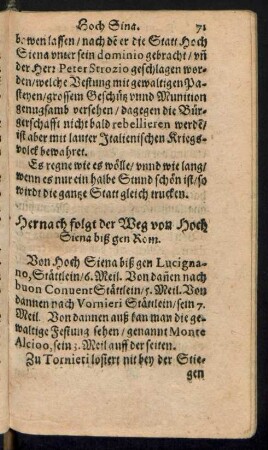 Hoch Sina. 71
bawen lassen / nach dẽ er die Statt Hoch
Siena vnter sein dominio gebracht / vñ
der Herr Peter Strozio geschlagen wor-
den / welche Vestung mit gewaltigen Pa-
steyen / grossem Geschütz vnnd Munition
genugsamb versehen / dagegen die Bür-
gerschafft nicht bald rebellieren werdẽ /
ist aber mit lauter Italienischen Kriegs-
volck bewahret.
Es regne wie es wölle / vnnd wie lang /
wenn es nur ein halbe Stund schön ist / so
wirdt die gantze Statt gleich trucken.
Hernach folgt der Weg von Hoch
Siena biß gen Rom.
Von Hoch Siena biß gen Lucigna-
no, Stättlein / 6. Meil. Von dañen nach
buon Conuent Stättlein / 5. Meil. Von
dannen nach Vornieri Stättlein / sein 7.
Meil. Von dannen auß kan man die ge-
waltige Festung sehen / genannt Monte
Alcioo, sein 3. Meil auff der seiten.
Zu Tornieri losiert nit bey der Stie-
gen